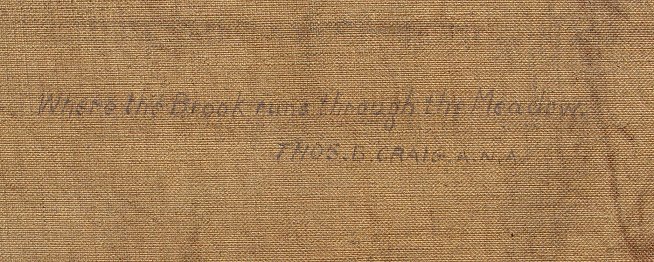 Where the Brook runs through the Meadow.
THOS. B. CRAIG A.N.A.